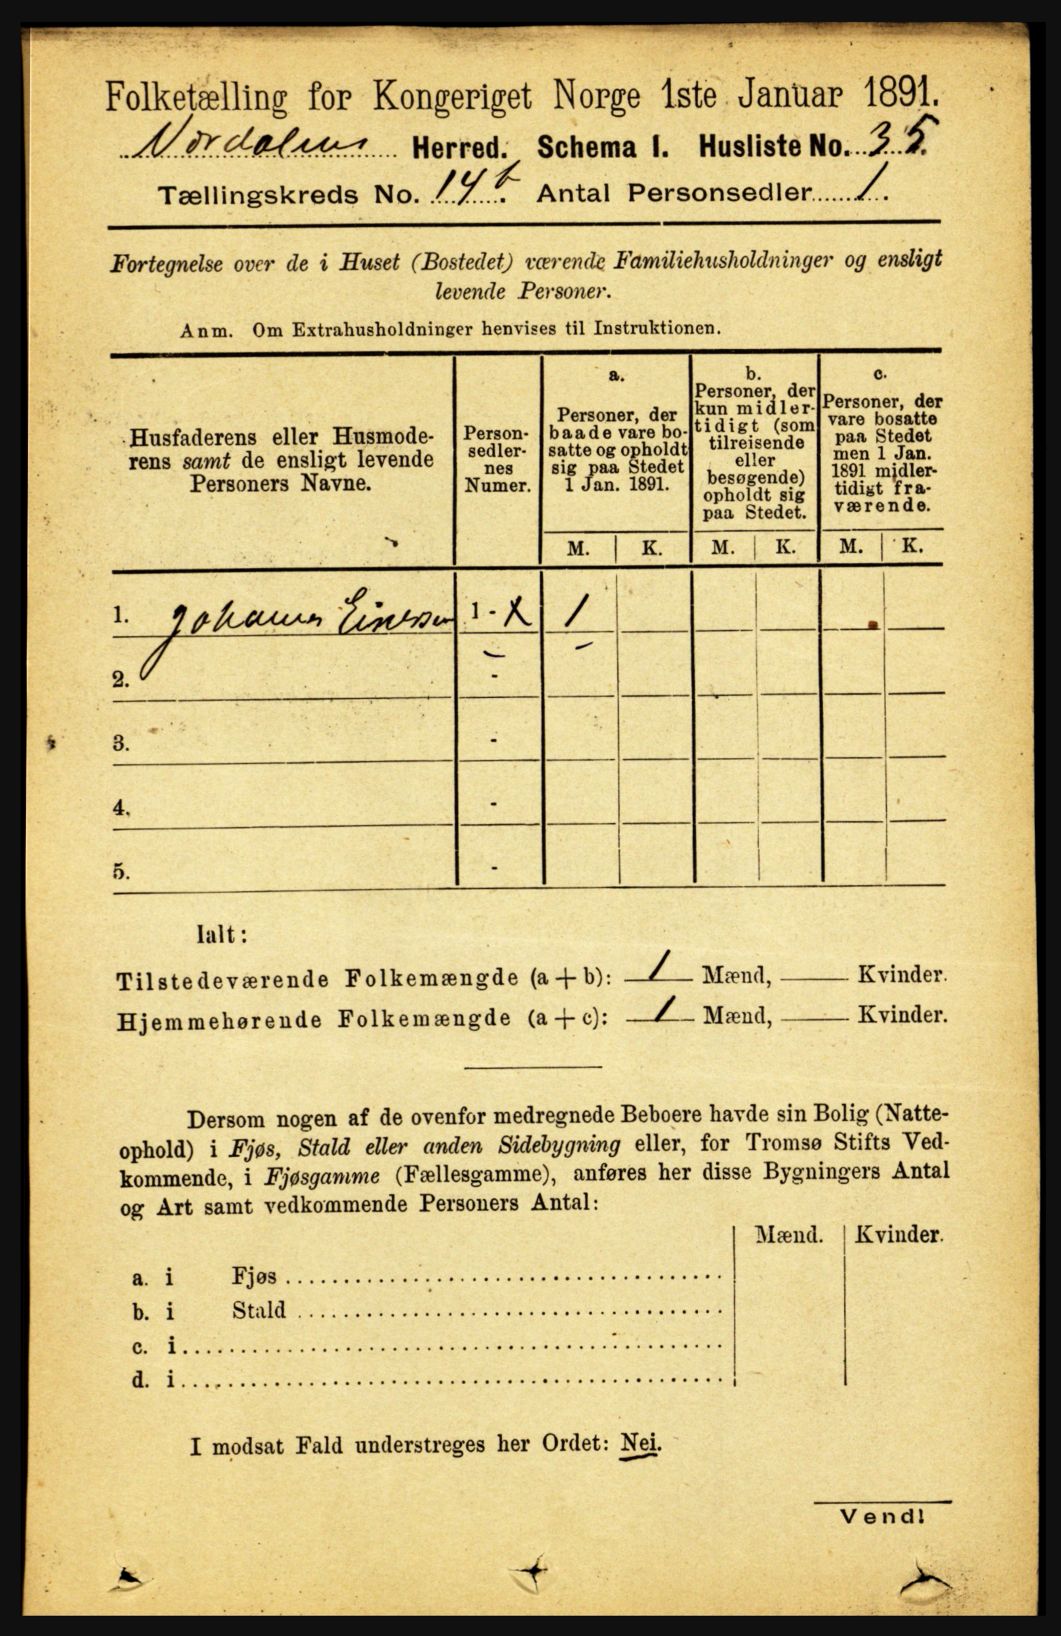 Folketælling for Kongeriget Norge 1ste Januar 1891.
Nordalens Herred. Schema I. Husliste No. 35.
Tællingskreds No. 14 b. Antal Personsedler 1.
Fortegnelse over de i Huset (Bostedet) værende Familiehusholdninger og ensligt
levende Personer.
Anm. Om Extrahusholdninger henvises til Instruktionen.
Husfaderens eller Husmode-
rens samt de ensligt levende
Personers Navne.
Person-
sedler-
nes
Numer.
a.
Personer, der
baade vare bo-
satte og opholdt
sig paa Stedet
1 Jan. 1891.
b.
Personer, der
kun midler-
tidigt (som
tilreisende
eller
besøgende)
opholdt sig
paa Stedet.
c.
Personer, der
vare bosatte
paa Stedet
men 1 Jan.
1891 midler-
tidigt fra-
værende.
M. K. M. K. M. K.
1. Johannes 1 - x 1
2. -
3. -
4. -
5. -
Ialt:
Tilstedeværende Folkemængde (a + b): 1 Mænd, — Kvinder.
Hjemmehørende Folkemængde (a + c): 1 Mænd, — Kvinder.
Dersom nogen af de ovenfor medregnede Beboere havde sin Bolig (Natte-
ophold) i Fjøs, Stald eller anden Sidebygning eller, for Tromsø Stifts Ved-
kommende, i Fjøsgamme (Fællesgamme), anføres her disse Bygningers Antal
og Art samt vedkommende Personers Antal:
Mænd. Kvinder.
a. i Fjøs
b. i Stald
c. i
d. i
I modsat Fald understreges her Ordet: Nei.
Vend!